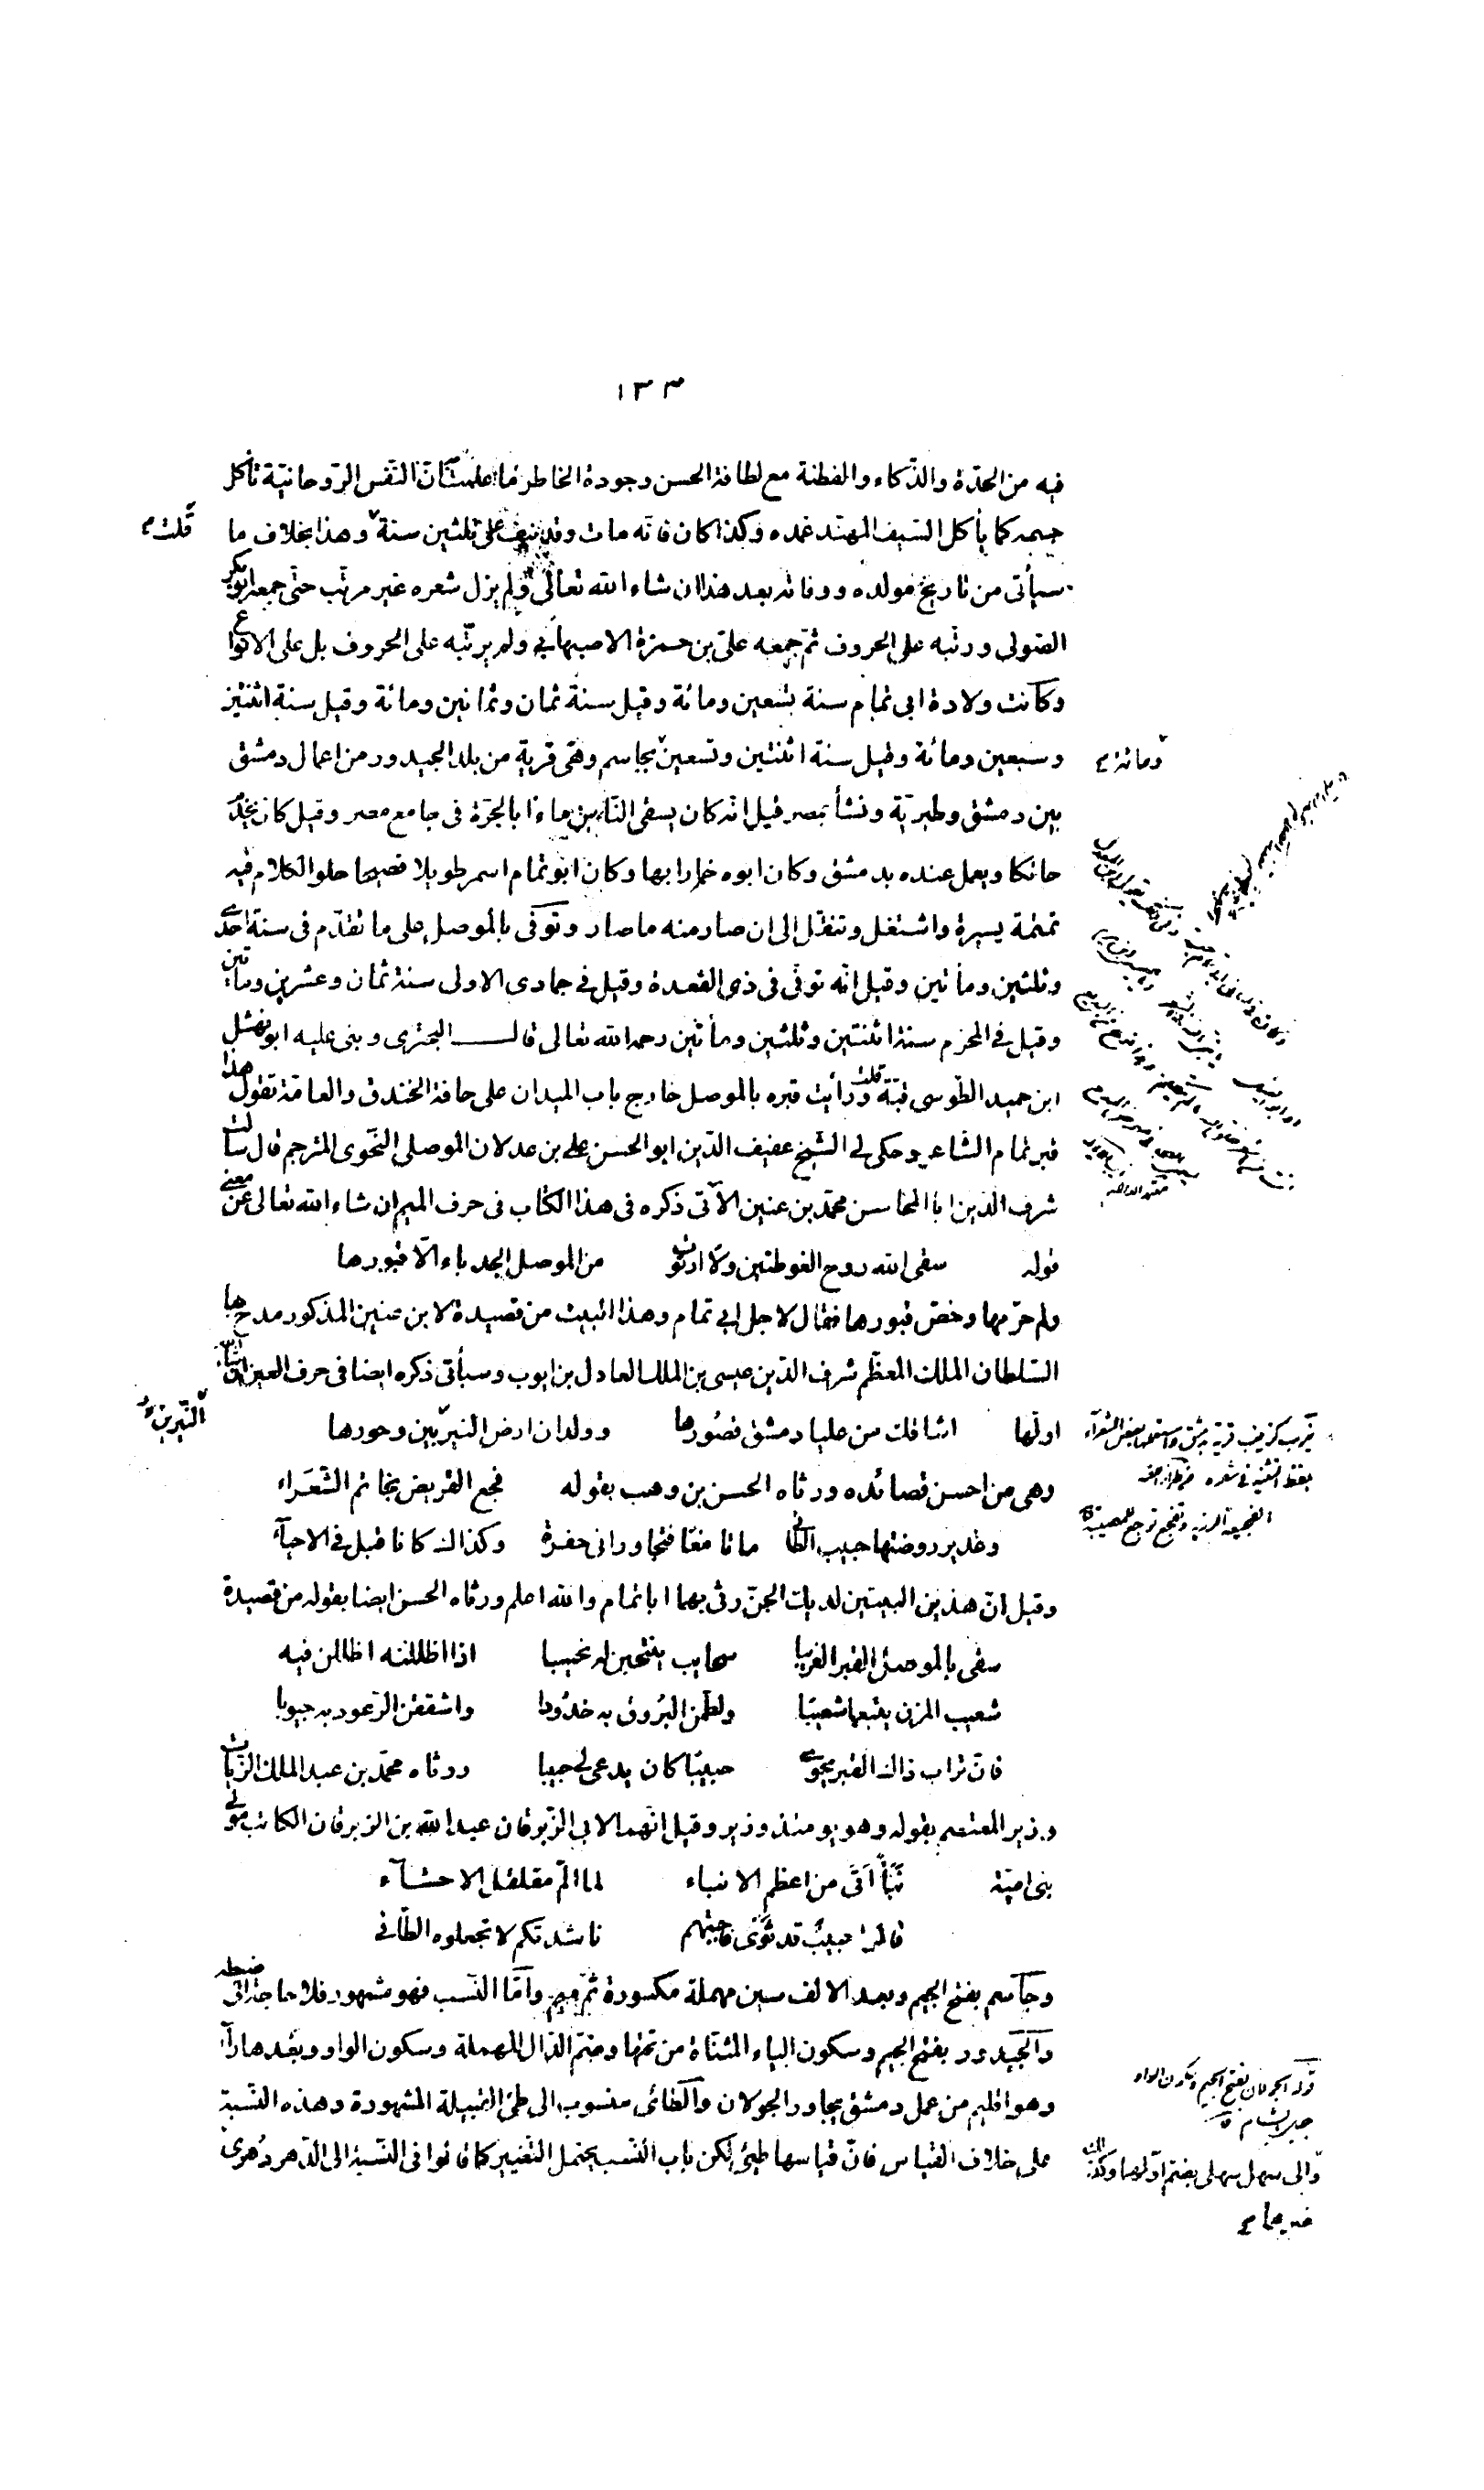 ١٣٣
فيه من الحدّة والذّكاء والفطنة مع لطافة الحسن وجودة الخاطر فما علمت انّ النّفس الرّوحانيّة تأكل
جسمه كما يأكل السّيف المهنّد غمده وكذا كان فانّه مات وقد نيف على ثلثين سنة وهذا بخلاف ما
قلت
سيأتى من تاريخ مولده ووفاته بعد هذا ان شاء الله تعالى ولم يزل شعره غير مرتّب حتّى جمعه ابو بكر
الصّولى ورتّبه على الحروف ثمّ جمعه علىّ بن حمزة الاصبهانى ولم يرتّبه على الحروف بل على الانواع
وكانت ولادة ابى تمام سنة تسعين ومائة وقيل سنة ثمان وثمانين ومائة وقيل سنة اثنتين
وسبعين ومائة وقيل سنة اثنتين وتسعين بجاسم وهى قرية من بلد الجيدور من اعمال دمشق
ومائة
بين دمشق وطبريّة ونشأ بمصر قيل انّه كان يسقى النّاس ماءً بالجرّة فى جامع مصر وقيل كان يخدم
حائكا ويعمل عنده بدمشق وكان ابوه خمارا بها وكان ابو تمام اسمر طويلا فصيحا حلو الكلام فيه
تمتمة يسيرة واشتغل وتنقّل الى ان صار منه ما صار وتوفّى بالموصل على ما تقدّم فى سنة احدى
وثلثين ومأتين وقيل انّه توفّى فى ذى القعدة وقيل فى جمادى الاولى سنة ثمان وعشرين ومأتين
وقيل فى المحرّم سنة اثنتين وثلثين ومأتين رحمه الله تعالى قال البحترى وبنى عليه ابو نهشل
ابن حميد الطّوسى قبّة قلت ورأيت قبره بالموصل خارج باب الميدان على حافة الخندق والعامّة تقول هذا
قبر تمام الشّاعر وحكى لى الشّيخ عفيف الدّين ابو الحسن على بن عدلان الموصلى النّحوى المترجم قال سألت
شرف الدّين ابا المحاسن محمّد بن عنين الآتى ذكره فى هذا الكتاب فى حرف الميم ان شاء الله تعالى عن معنى
قوله سقى الله دوح الغوطتين ولا ارتوت من الموصل الحدباء الّا قبورها
ولم حرّمها وخصّ قبورها فقال لاجل ابى تمام وهذا البيت من قصيدة لابن عنين المذكور مدح بها
السّلطان الملك المعظّم شرف الدّين عيسى بن الملك العادل بن ايوب وسيأتى ذكره ايضا فى حرف العين ان شاء الله
اولّها اشاقك من عليا دمشق قصورها وولدان ارض النيربين وحورها
النّيربين
وهى من احسن قصائده ورثاه الحسن بن وهب بقوله فجع القريض بخاتم الشّعراء
وغدير روضتها حبيب الطّائى ماتا معًا فتجاورا فى حفرة وكذاك كانا قبل فى الاحياء
وقيل انّ هذين البيتين لديك الجنّ رثى بهما ابا تمام والله اعلم ورثاه الحسن ايضا بقوله من قصيدة
سقى بالموصل القبر الغريبا سحايب ينتحبن له نحيبا اذا اظللنه اظللن فيه
شعيب المزن يتبعها شعيبًا ولطّمن البروق به خدودا واشققن الرّعود به جيوبا
فانّ تراب ذاك القبر يحوى حبيبًا كان يدعى لى حبيبا ورثاه محمّد بن عبد الملك الزيّات
وزير المعتصم بقوله وهو يومئذ وزير وقيل انّهما لابى الزّبرقان عبد الله بن الزبرقان الكاتب مولى
بنى اميّة نبأٌ اتى من اعظم الانباء لما المّ مقلقل الاحشآء
قالوا حبيبٌ قد ثوى فاجبتهم ناشدتكم لا تجعلوه الطّائى
وجاسم بفتح الجيم وبعد الالف سين مهملة مكسورة ثمّ ميم وامّا النّسب فهو مشهور فلا حاجة الى ضبطه
والجيدور بفتح الجيم وسكون الياء المثنّاة من تحتها وضمّ الدّال المهملة وسكون الواو وبعدها راء
وهو اقليم من عمل دمشق يجاور الجولان والطّائى منسوب الى طىّ القبيلة المشهورة وهذه النّسبة
على خلاف القياس فانّ قياسها طيئى لكن باب النّسب يحتمل التّغيير كما قالوا فى النّسبة الى الدّهر دُهرىّ
نيرب كزينب قرية بدمشق واستعملها بعض الشعراء
بلفظ التثنية فى شعره
الفجيعة الرزية وتفجع توجع للمصيبة
قوله الجولان بفتح الجيم وسكون الواو
جبل بالشام
والى سهل سهلى بضم اوّلهما وكذلك